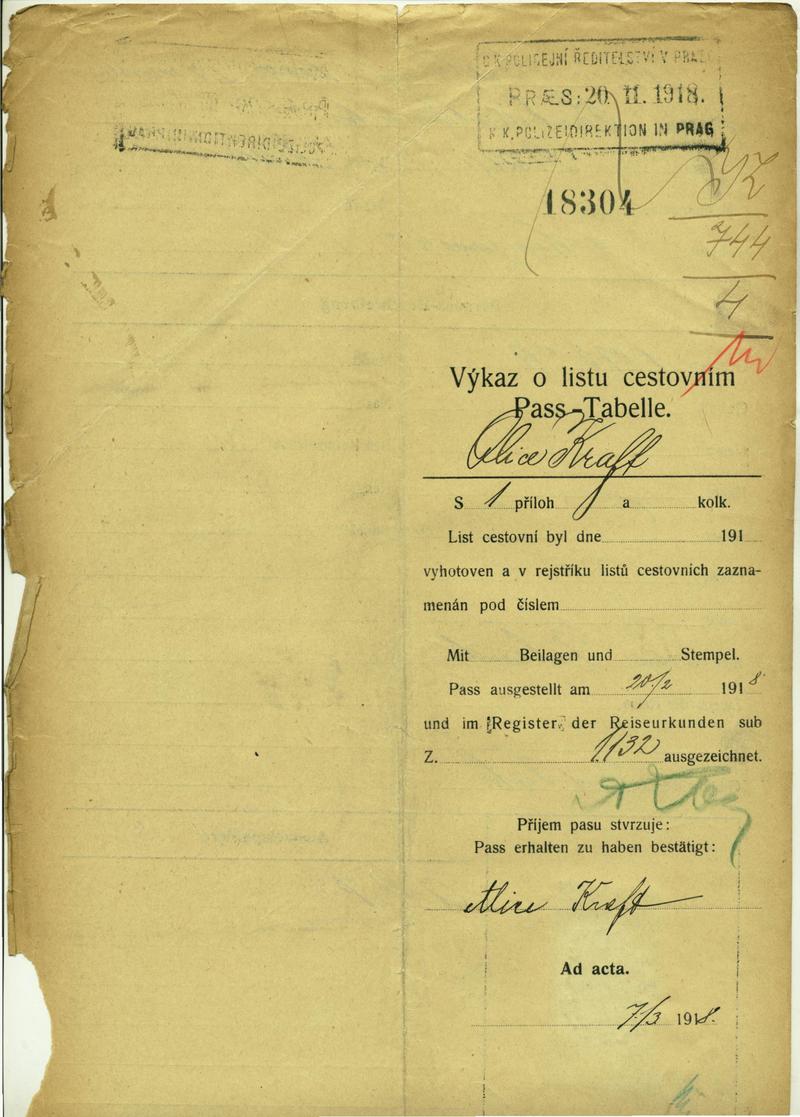 C. K. POLICEJNÍ ŘEDITELSTVÍ V PRAZE
PRÆS: 20. II. 1918.
K. K. POLIZEIDIREKTION IN PRAG
18304
K
744
4
Výkaz o listu cestovním
Pass-Tabelle.
Alice Kraft
S 1 příloh a kolk.
List cestovní byl dne 191
vyhotoven a v rejstříku listů cestovních zazna-
menán pod číslem
Mit Beilagen und Stempel.
Pass ausgestellt am 20/2 1918
und im Register der Reiseurkunden sub
Z. 1132 ausgezeichnet.
Příjem pasu stvrzuje:
Pass erhalten zu haben bestätigt:
Alice Kraft
Ad acta.
7/3 1918.